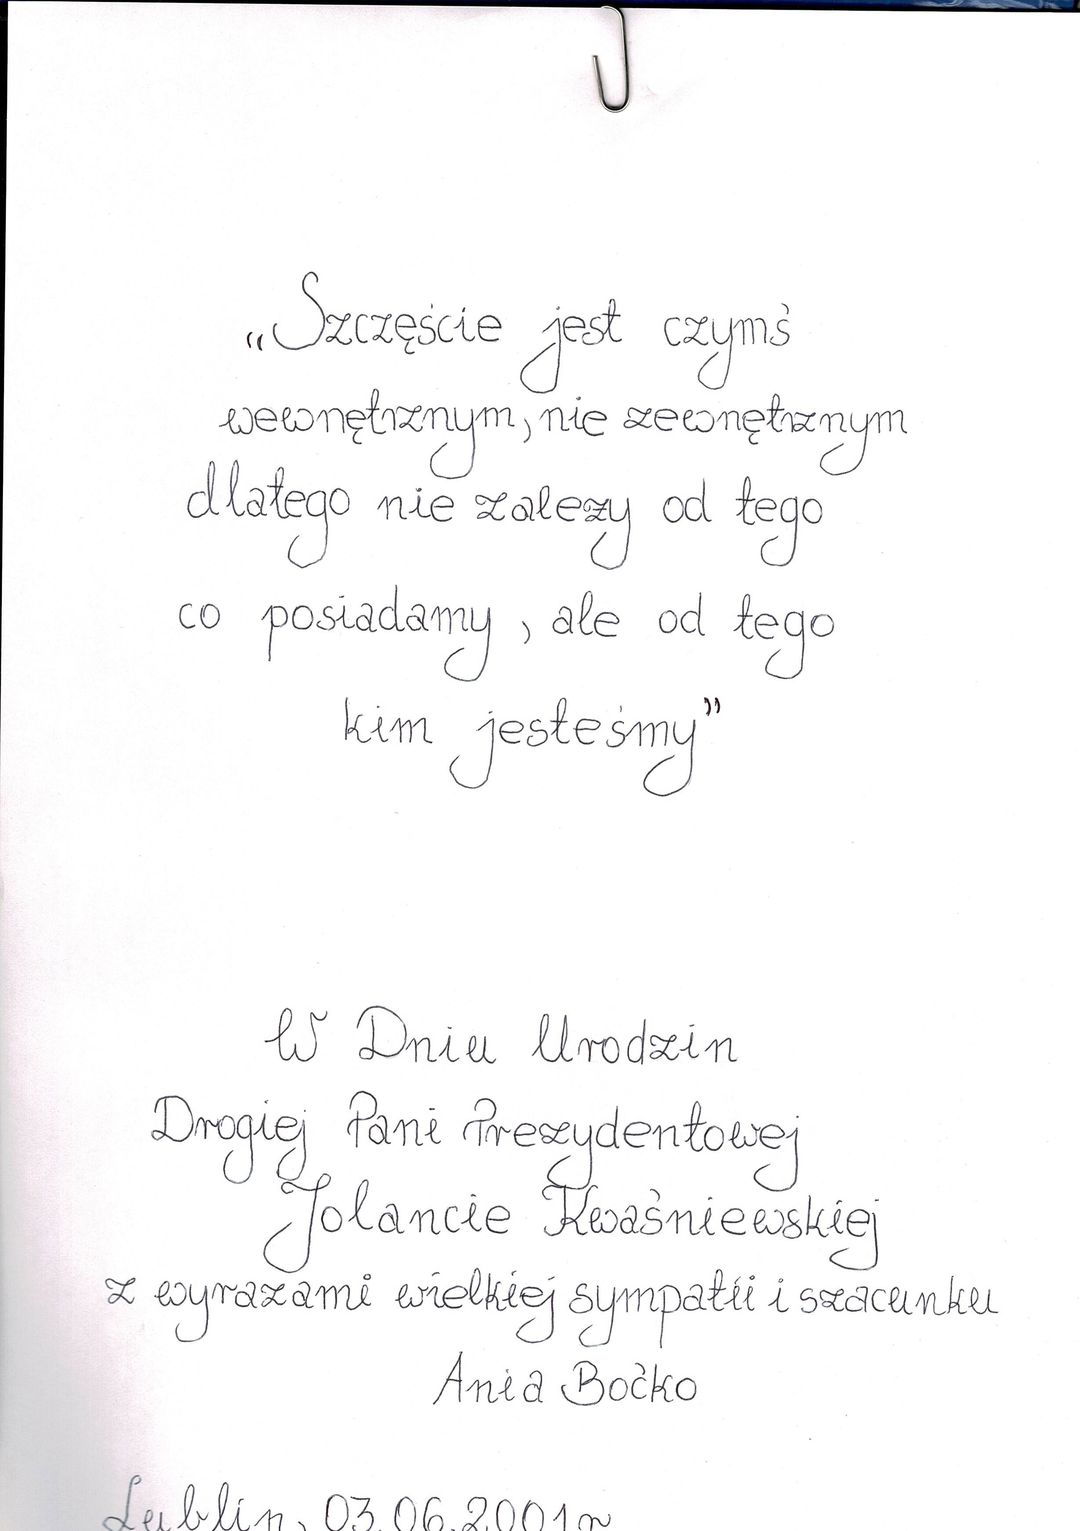 „Szczęście jest czymś
wewnętrznym, nie zewnętrznym
dlatego nie zależy od tego
co posiadamy, ale od tego
kim jesteśmy”
W Dniu Urodzin
Drogiej Pani Prezydentowej
Jolancie Kwaśniewskiej
z wyrazami wielkiej sympatii i szacunku
Ania Boćko
Lublin, 03.06.2001r